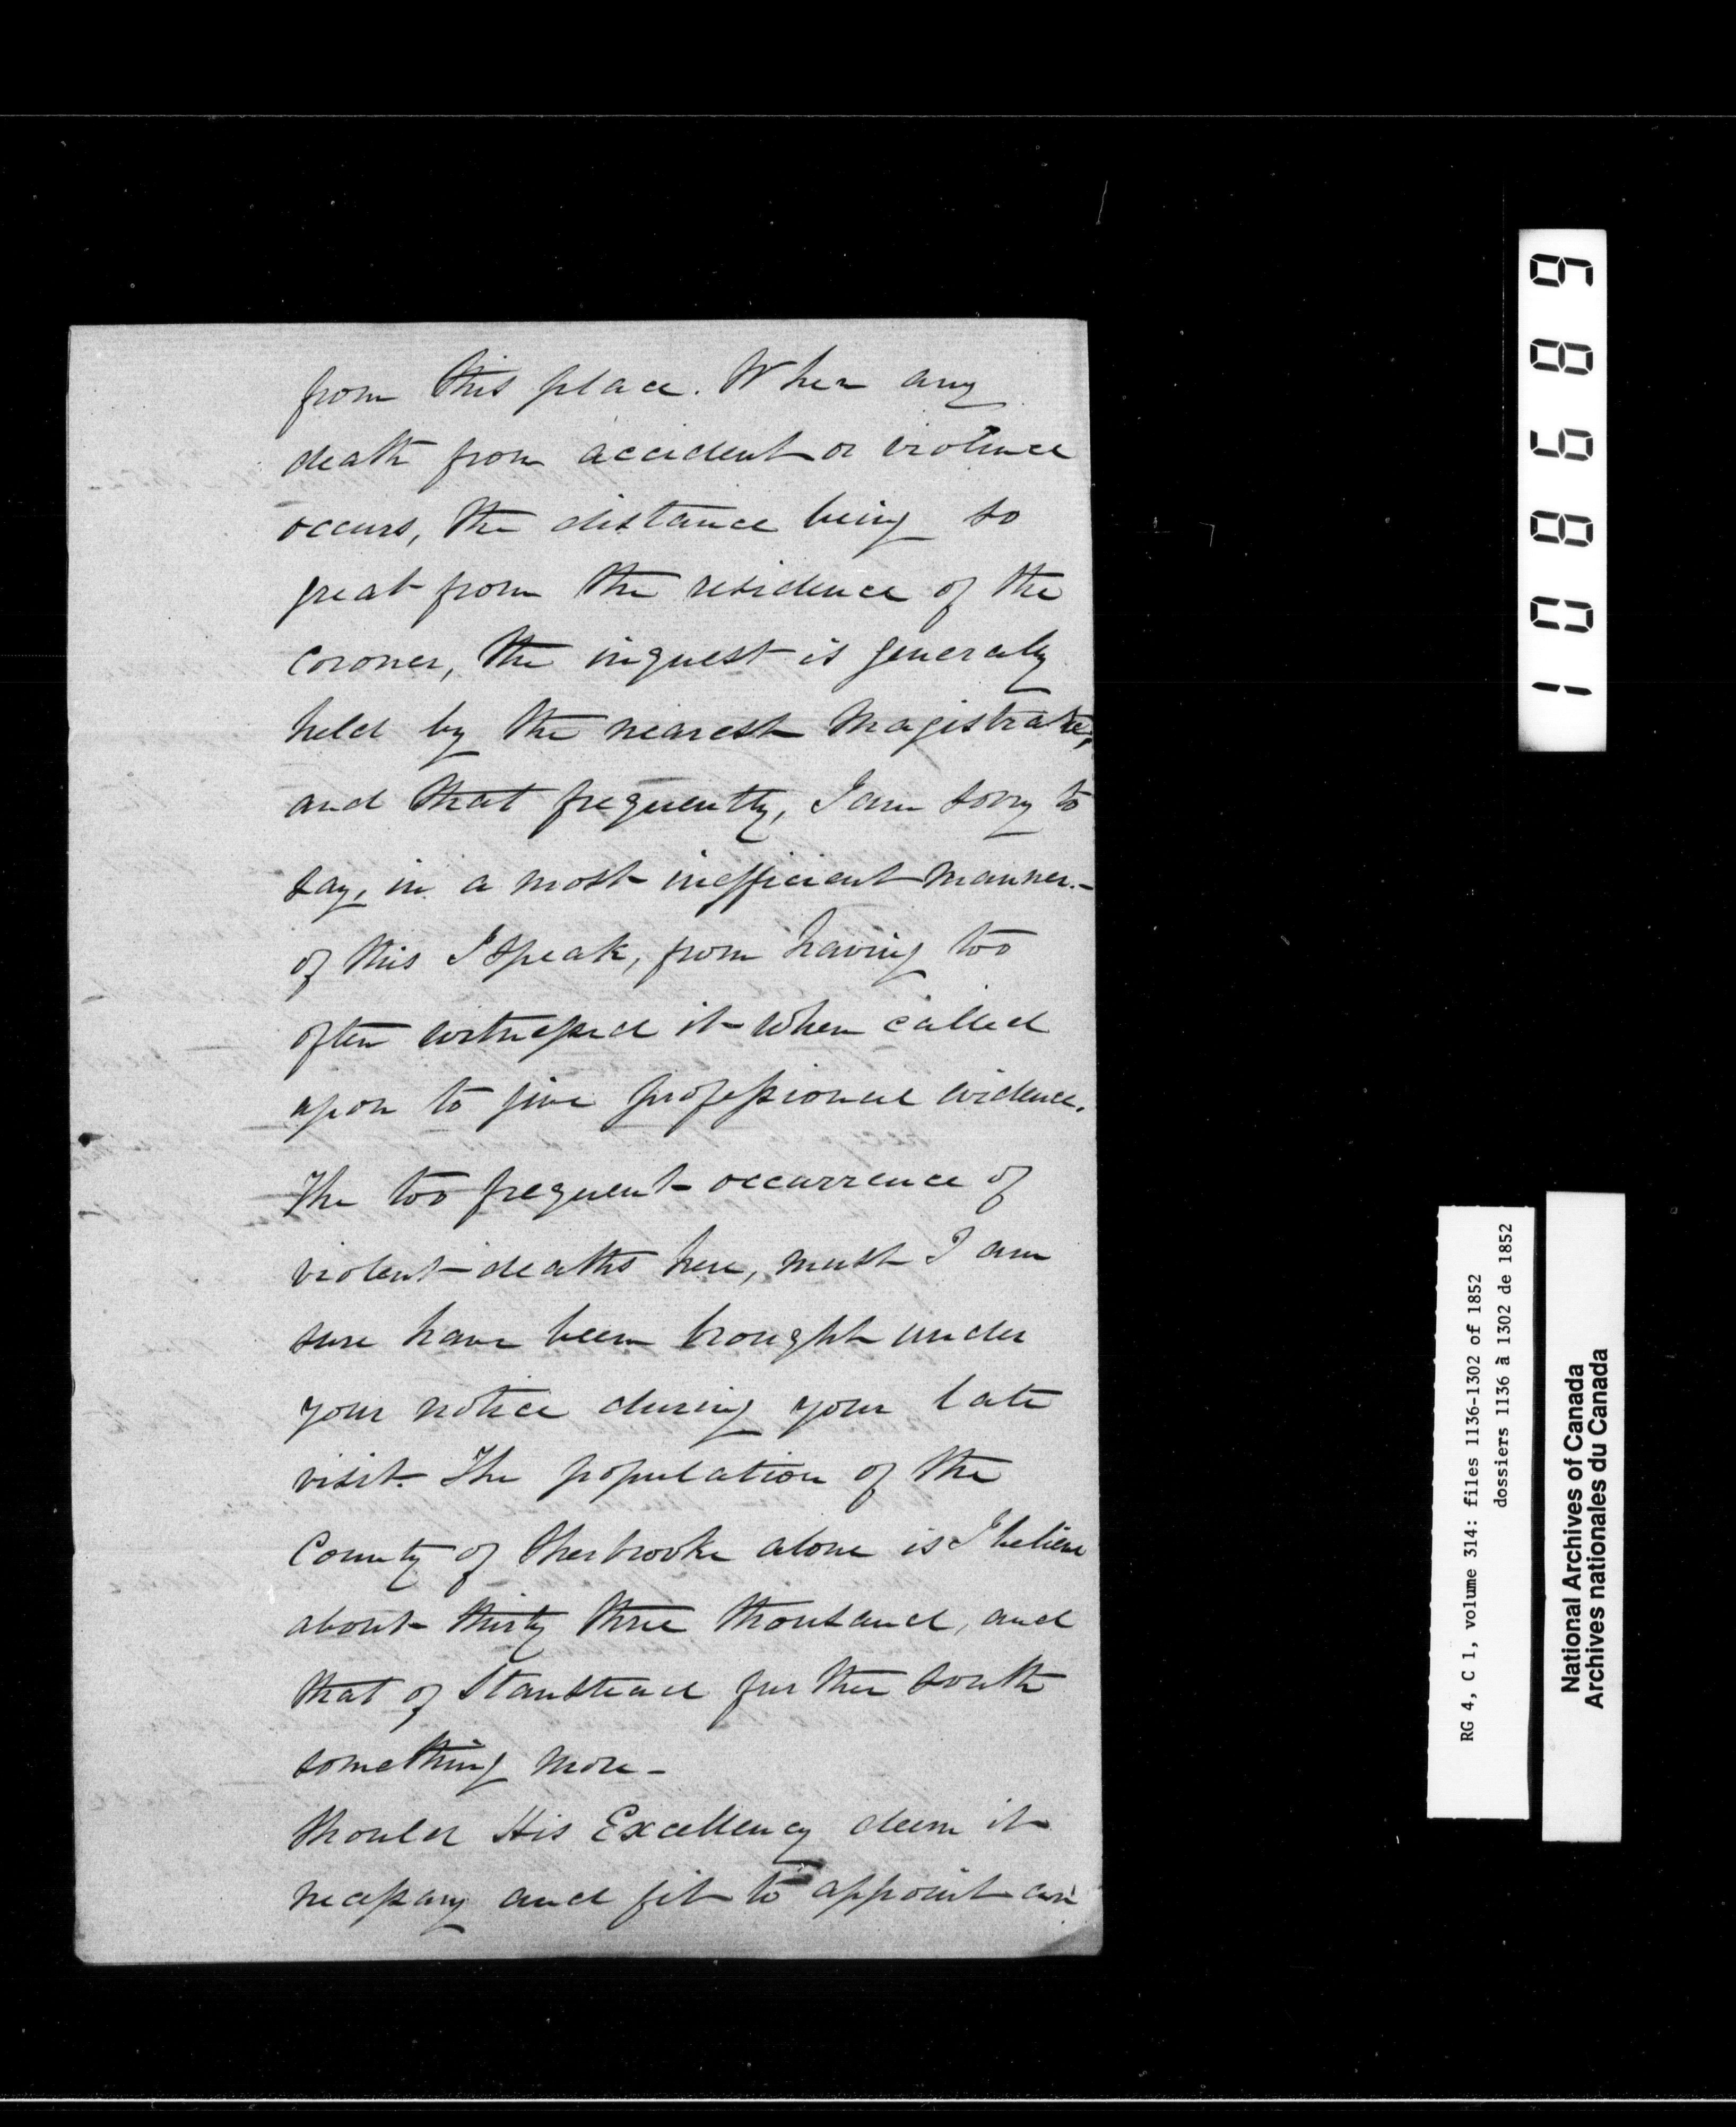 from this place. When any
death from accident or violence
occurs, the distance being so
great from the residence of the
Coroner, the inquest is generally
held by the nearest Magistrate,
and that frequently, I am sorry to
say, in a most inefficient manner.-
of this I speak, from having too
often witnessed it when called
upon to give professional evidence.
The too frequent occurrence of
violent deaths here, must I am
sure have been brought under
your notice during your late
visit. The population of the
County of Sherbrooke alone is I believe
about thirty three thousand, and
that of Stanstead further South
something more -
Should His Excellency deem it
necessary and fit to appoint an
108689
RG 4, C 1, volume 314: files 1136-1302 of 1852
dossiers 1136 à 1302 de 1852
National Archives of Canada
Archives nationales du Canada